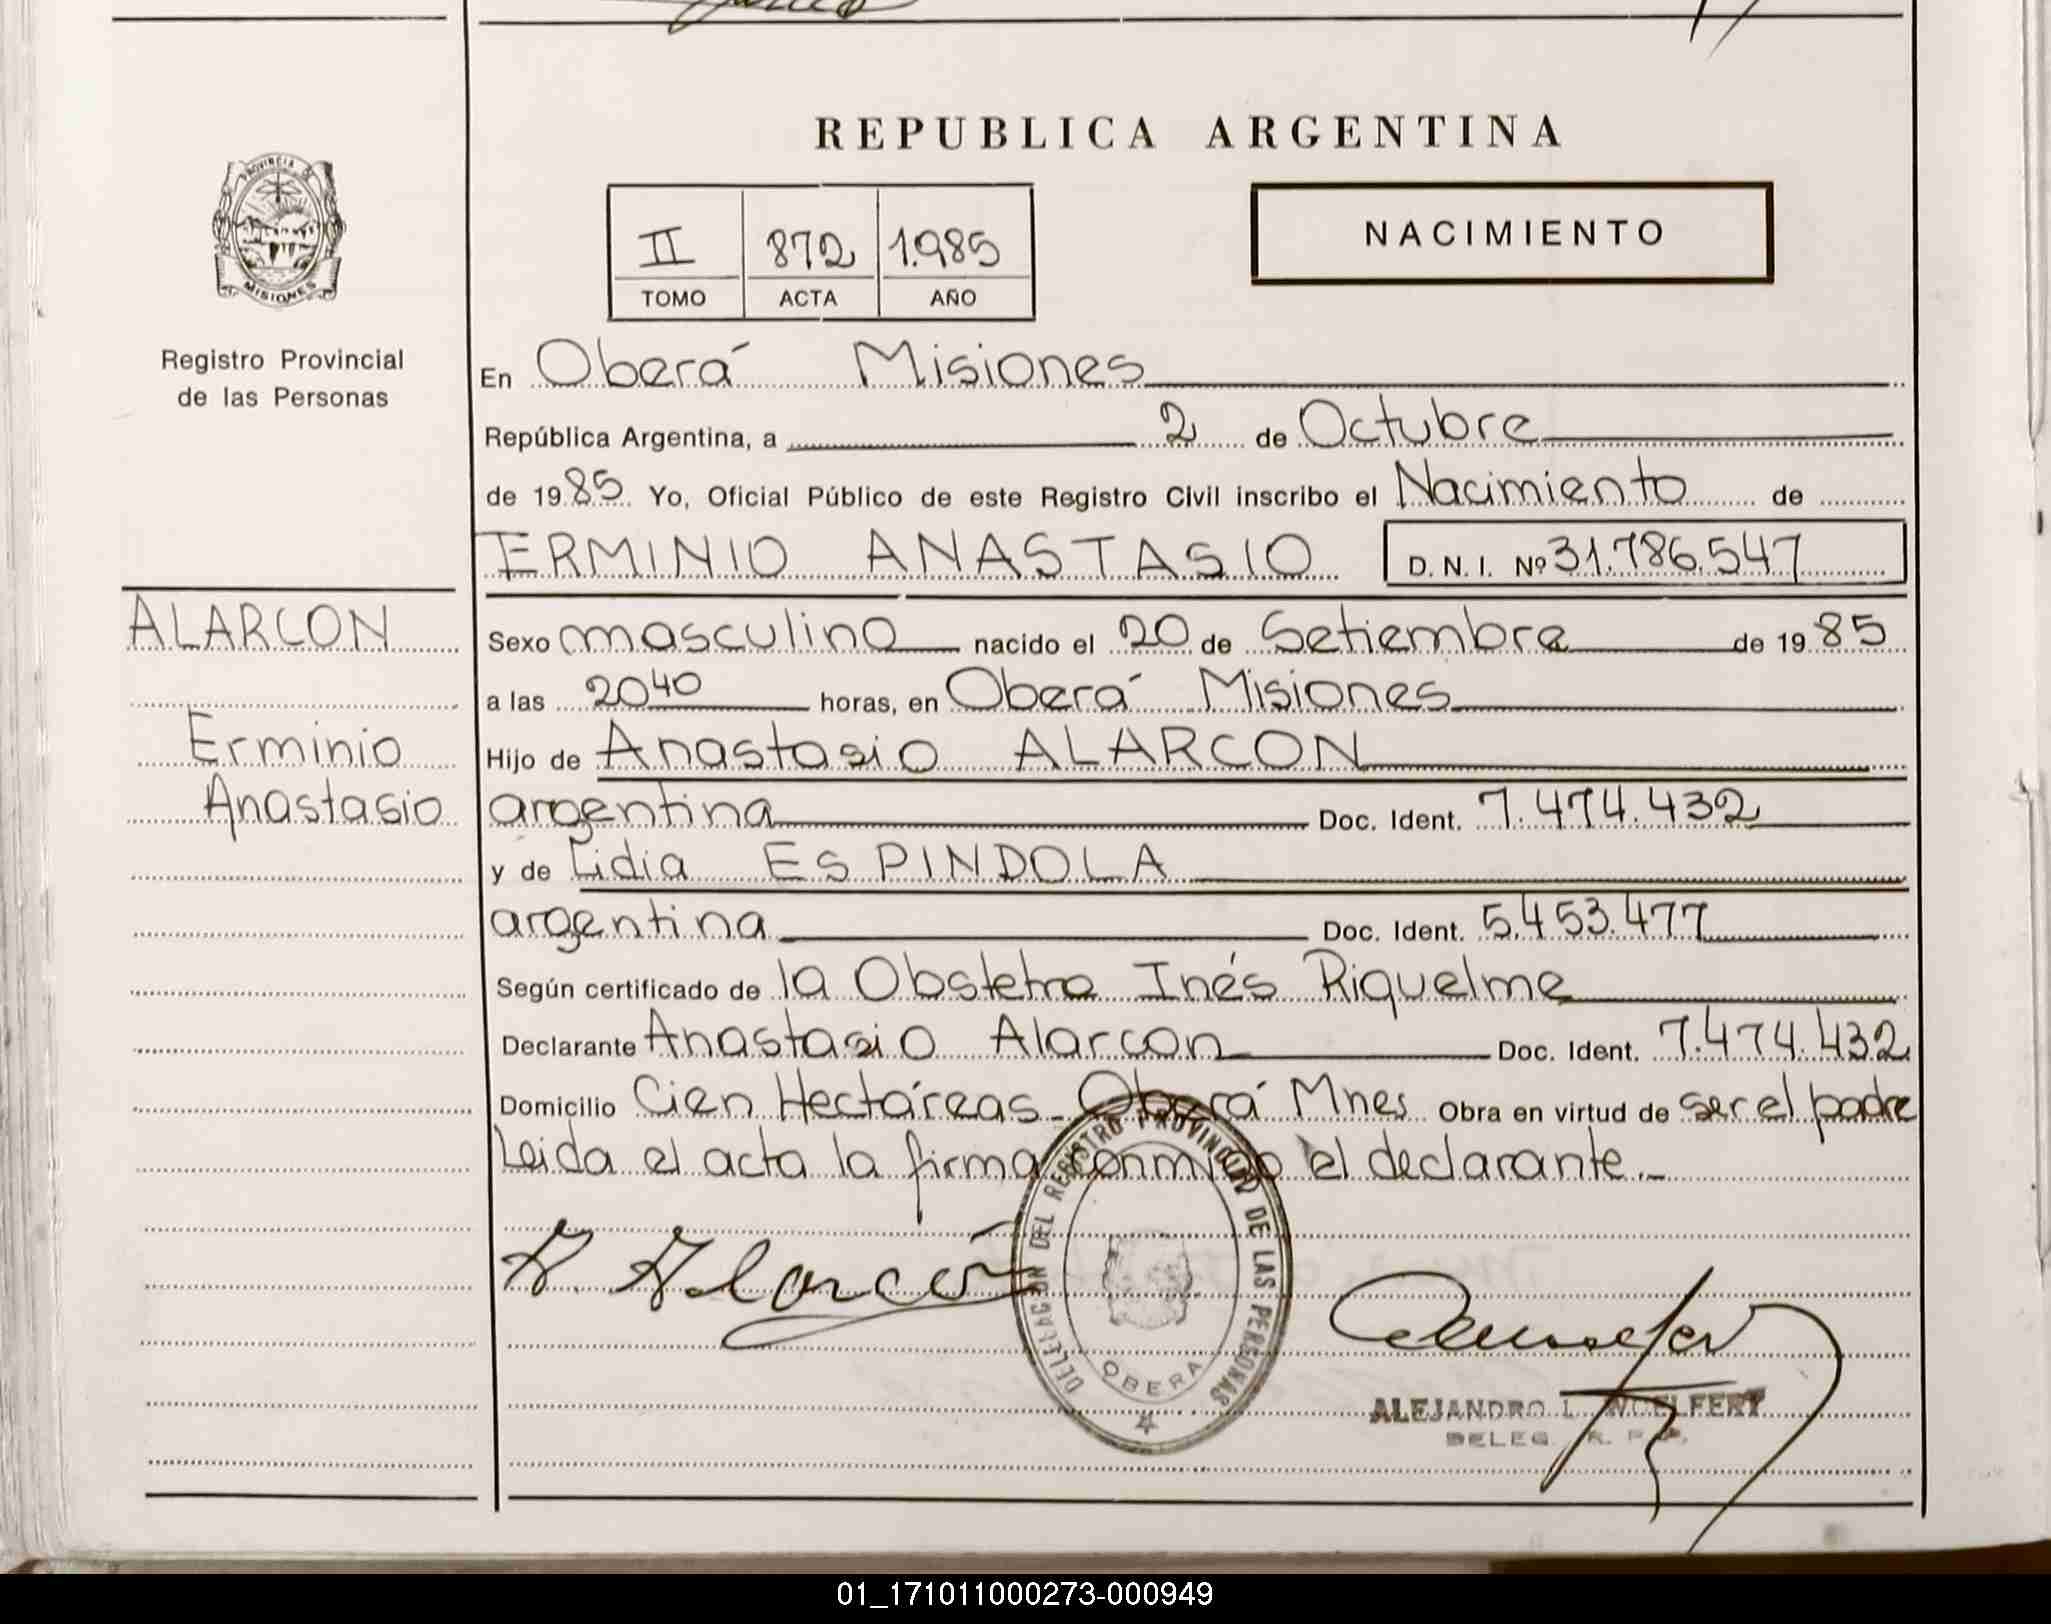 REPUBLICA ARGENTINA
PROVINCIA DE
MISIONES
II 872 1.985
TOMO ACTA AÑO
NACIMIENTO
Registro Provincial
de las Personas
En Oberá Misiones
República Argentina, a 2 de Octubre
de 1985. Yo, Oficial Público de este Registro Civil inscribo el Nacimiento de
ERMINIO ANASTASIO D. N. I. Nº 31.786.547
ALARCON
Erminio
Anastasio
Sexo masculino nacido el 20 de Setiembre de 1985
a las 20 40 horas, en Oberá Misiones
Hijo de Anastasio ALARCON
argentina Doc. Ident. 7.474.432
y de Lidia ESPINDOLA
argentina Doc. Ident. 5.453.477
Según certificado de la Obstetra Inés Riquelme
Declarante Anastasio Alarcon Doc. Ident. 7.474.432
Domicilio Cien Hectáreas - Oberá Mnes Obra en virtud de ser el padre
Leida el acta la firma conmigo el declarante.-
A. Alarcón
DELEGACION DEL REGISTRO PROVINCIAL DE LAS PERSONAS
OBERA
ALEJANDRO L. WOELFERT
DELEG. R. P. P.
01_171011000273-000949